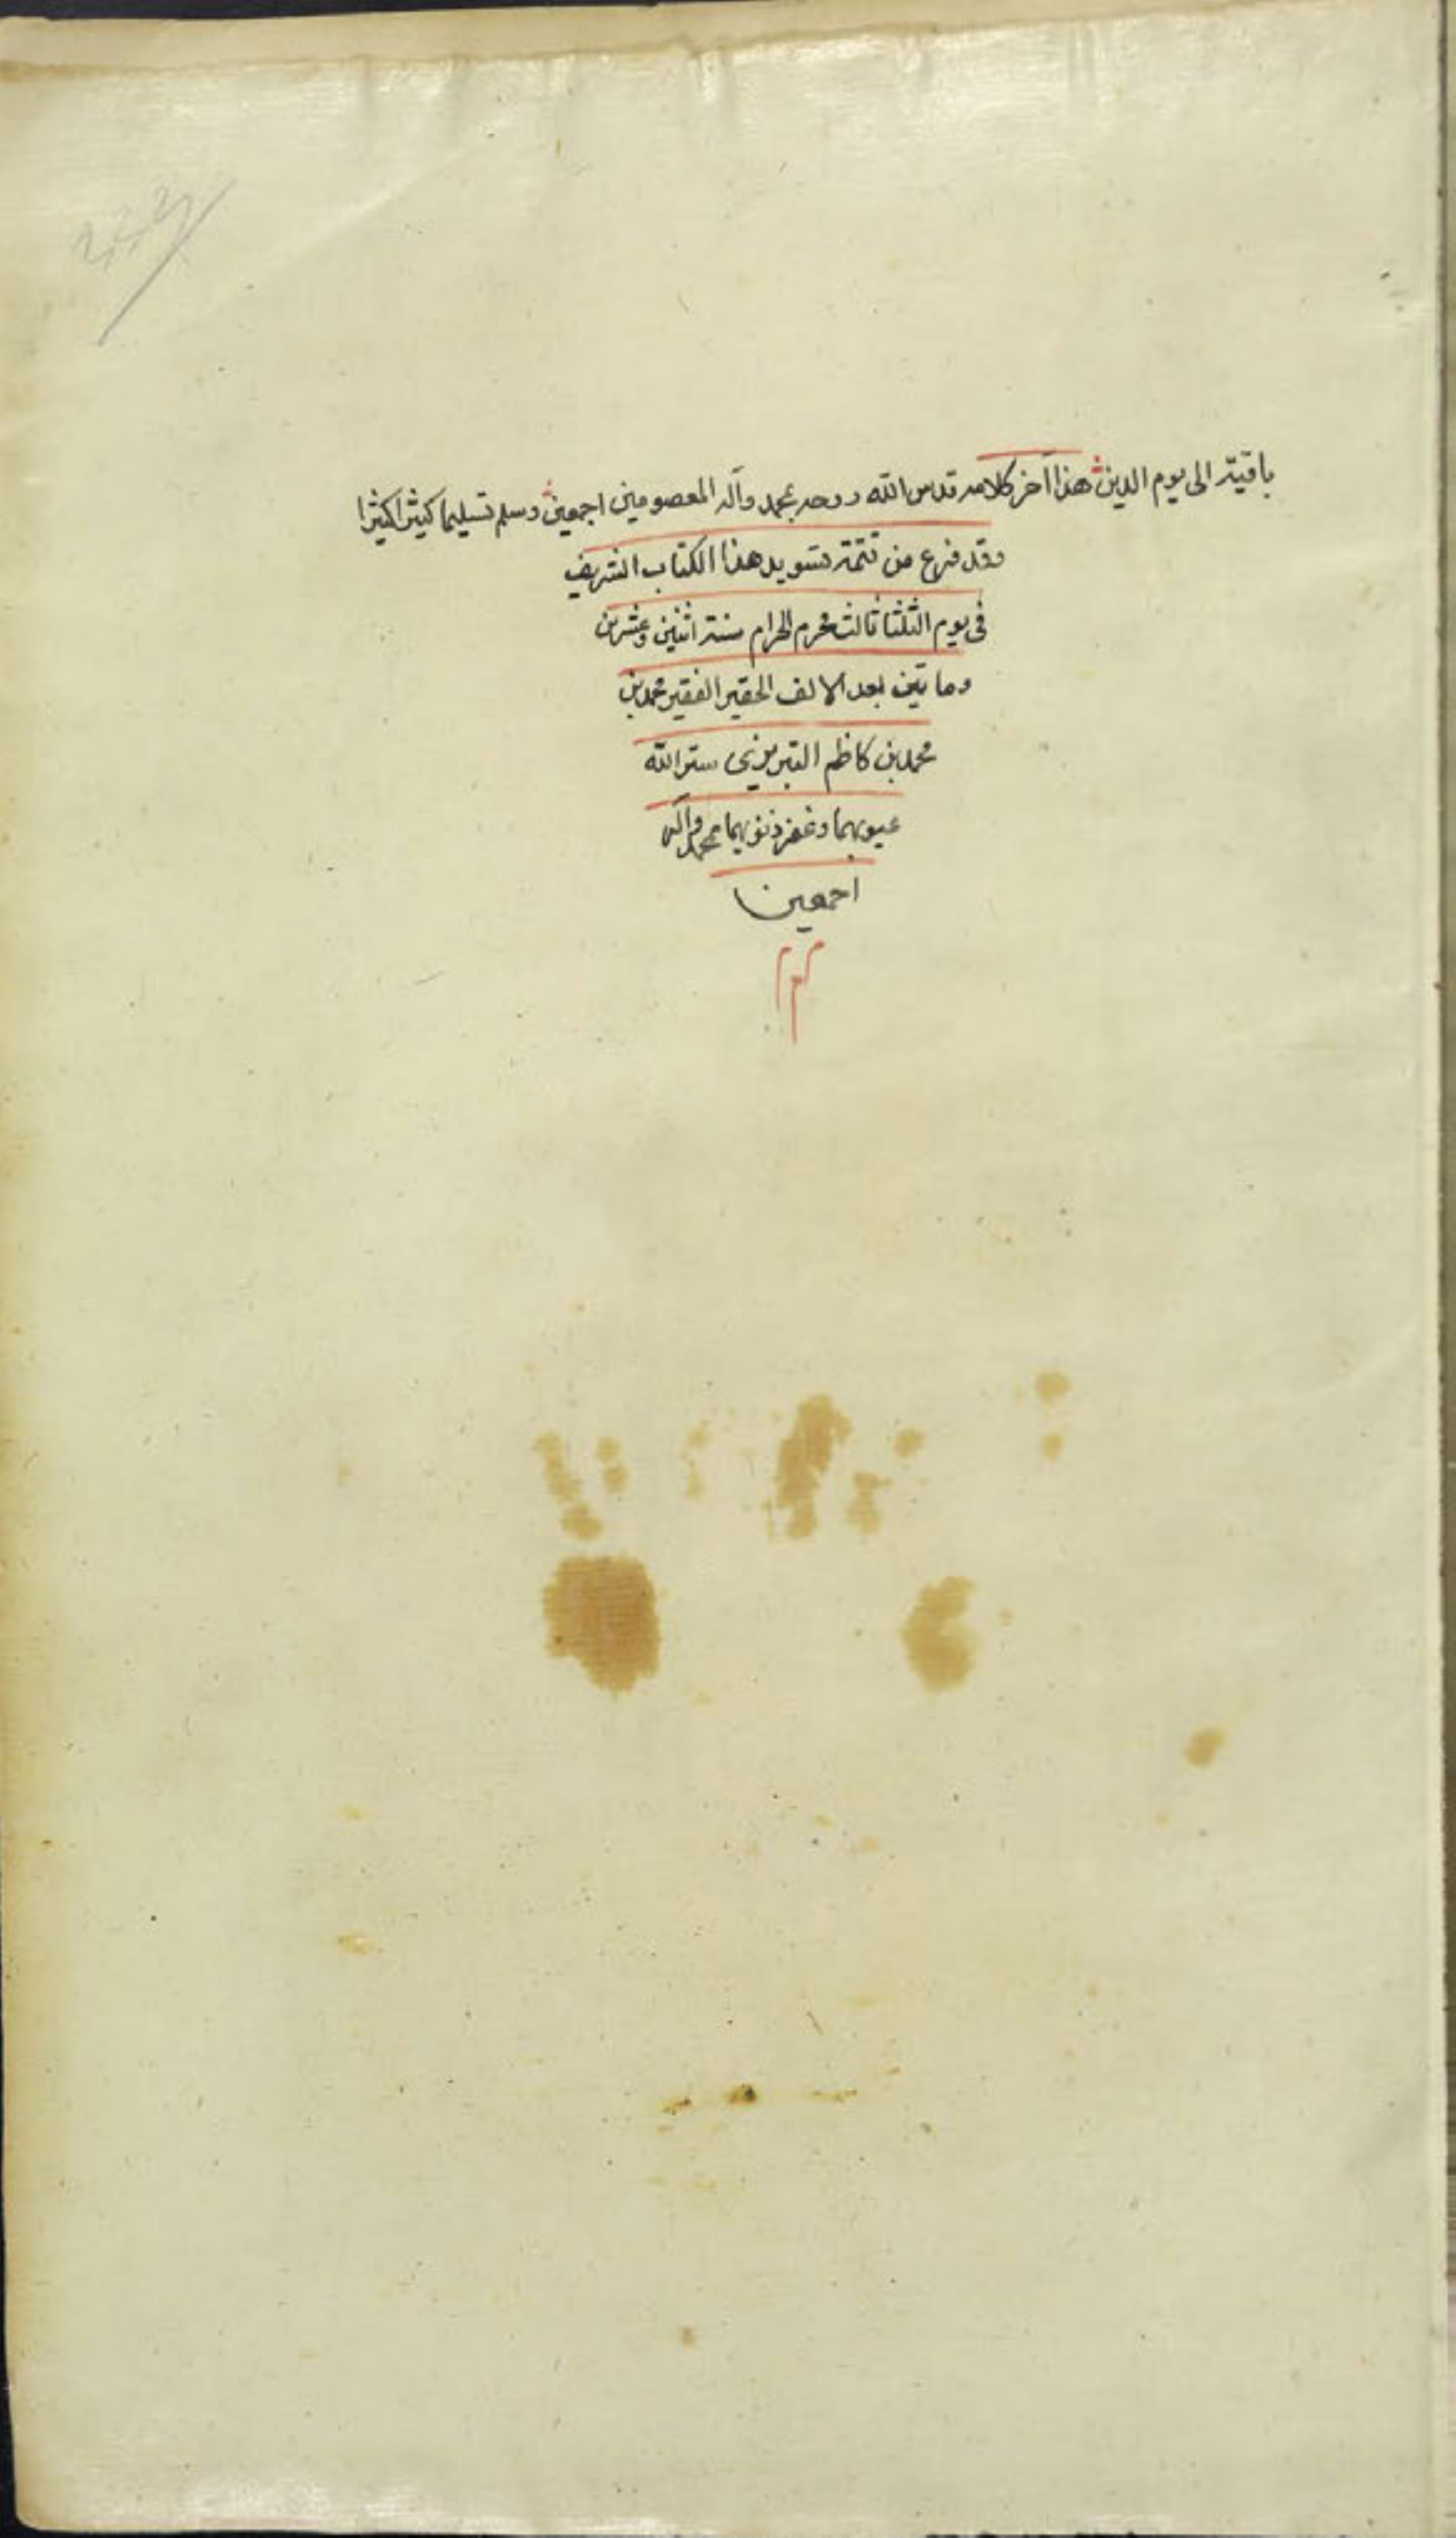 باقية الى يوم الدين هذا آخر كلامه قدس الله روحه بمحمد وآله المعصومين اجمعين وسلم تسليما كثيرا كثيرا
وقد فرغ من تتمة تسويد هذا الكتاب الشريف
فى يوم الثلثا ثالث محرم الحرام سنة اثنين وعشرين
وماتين بعد الالف الحقير الفقير محمد بن
محمد بن كاظم التبريزى ستر الله
عيوبهما وغفر ذنوبهما بمحمد وآله
اجمعين